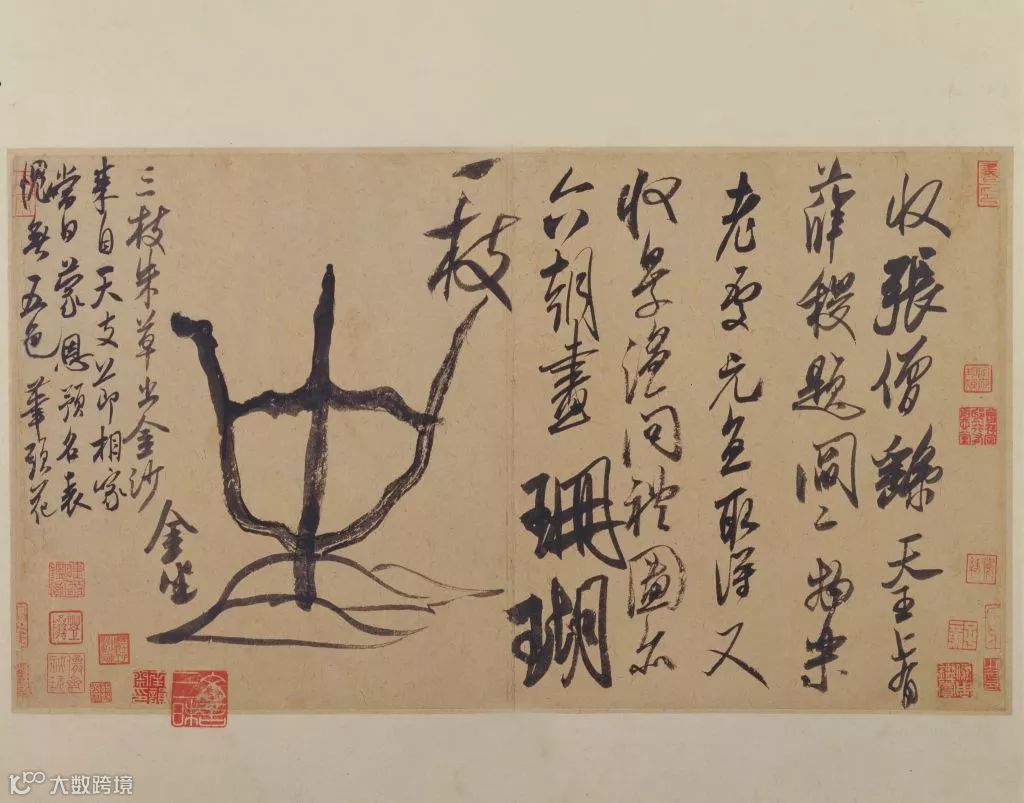 收張僧繇天王上有
薛稷題閻二物樂
老處元直取得又
收景溫問禮圖亦
六朝畫珊瑚
一枝
金坐
三枝朱草出金沙
來自天支節相家
當日蒙恩預名表
愧無五色筆頭花
大数跨境